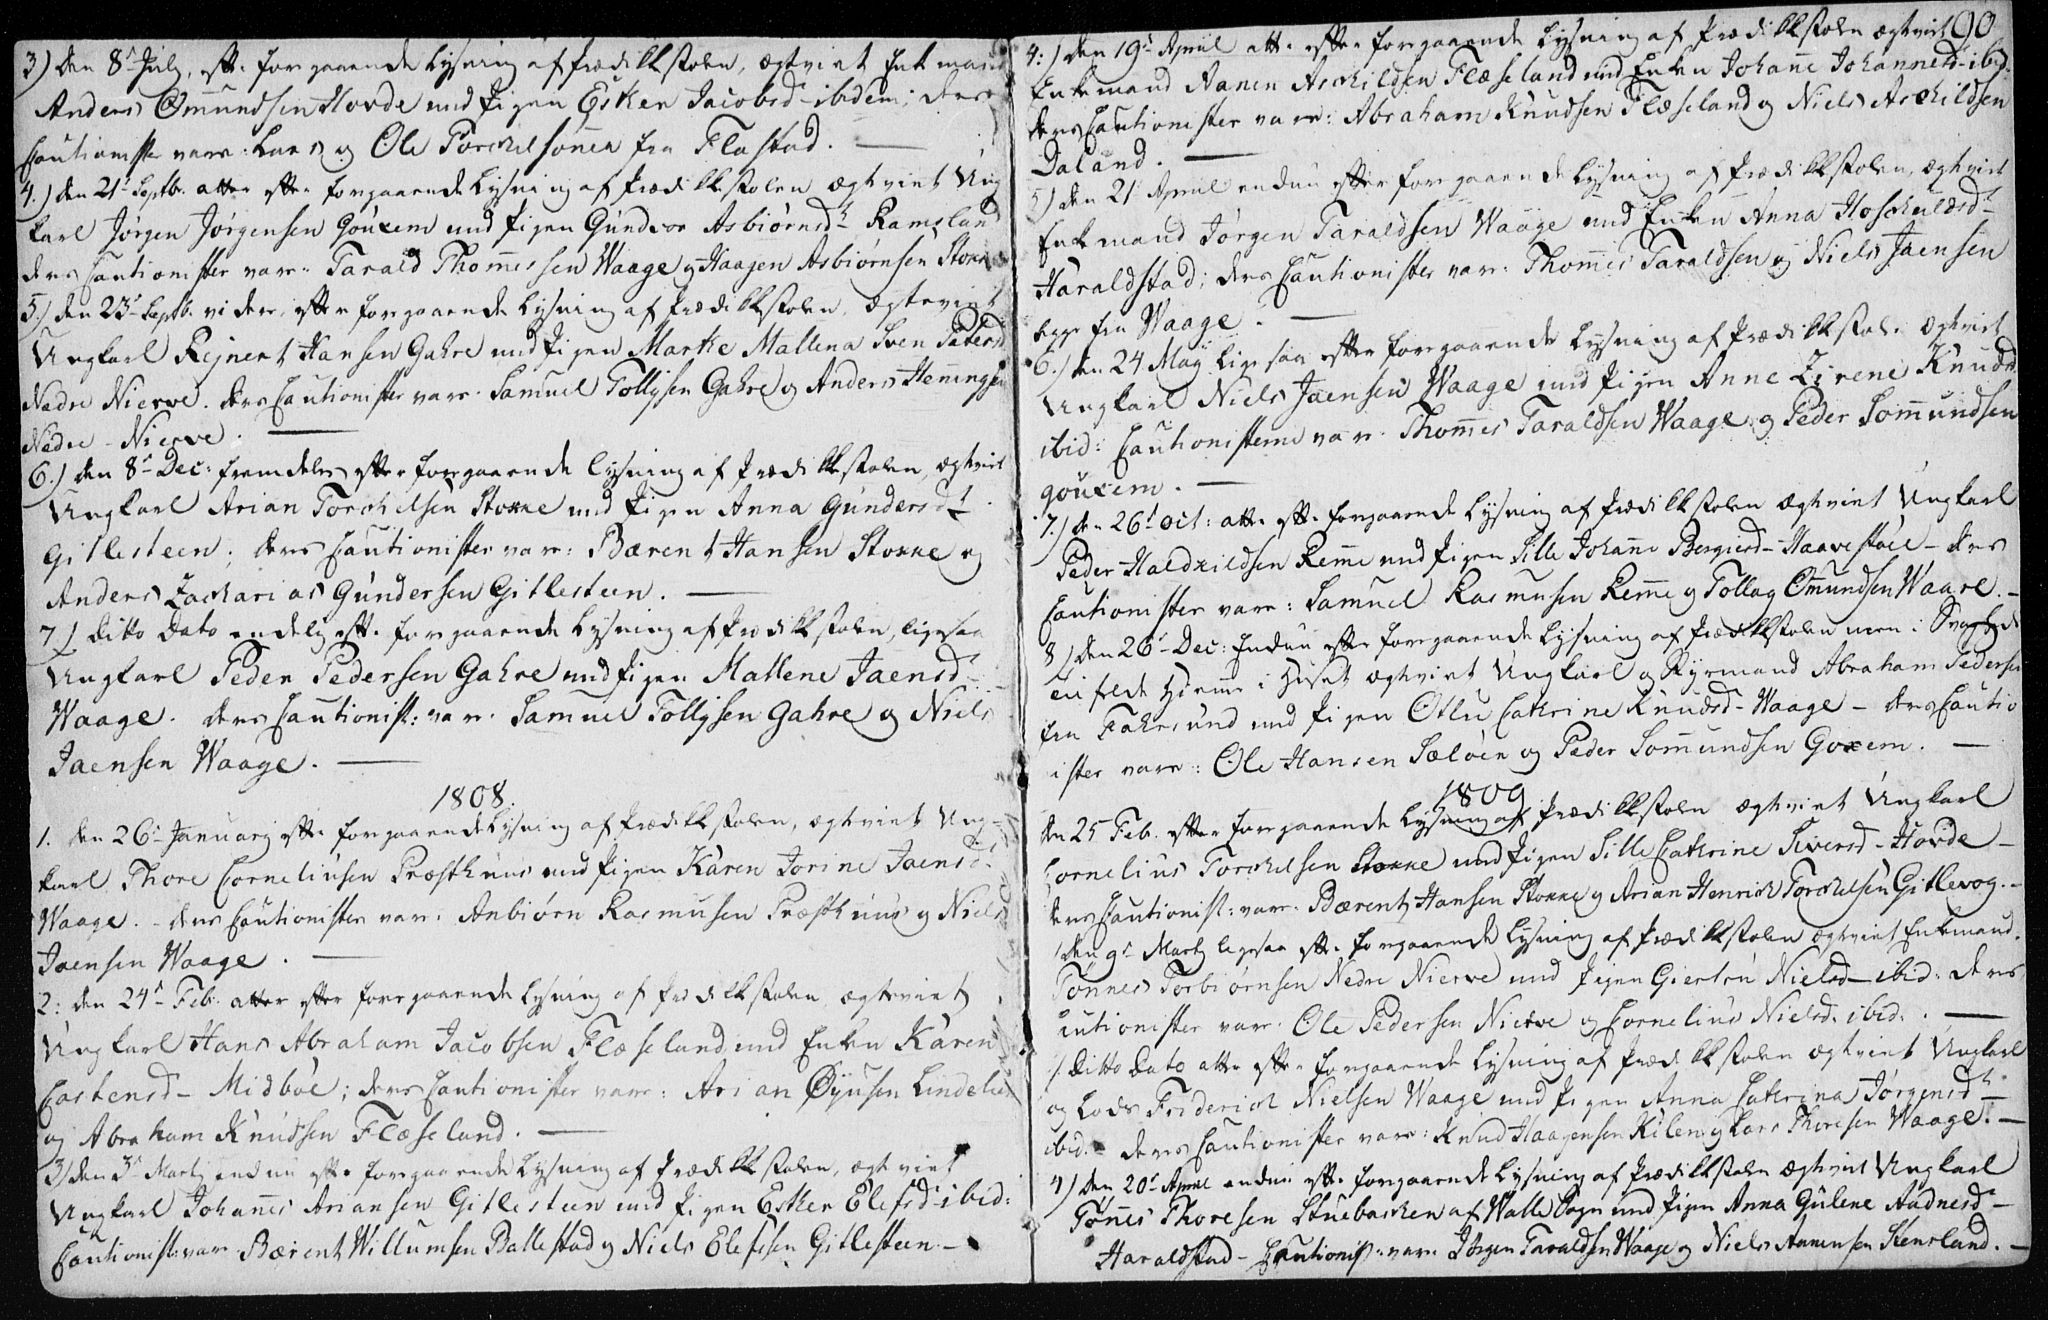 3) Den 8d July, eft. forgaaende Lysning af Prædikkstolen, ægtviet Enkemand
Anders Omundsen Hovde med Pigen Esther Jacobsd- ibidem; deres
Cautionister vare: Lars og Ole Torkelsönner fra Flastad.
4.) Den 21d Septb. atter efter forgaaende Lysning af Prædikkstolen ægtviet Ung
karl Jørgen Jørgensen Gouxem med Pigen Gundvor Asbiørnsdt Ramsland
deres Cautionister vare: Tarald Thommessen Waage og Haagen Asbiørnsen
5.) Den 23d Septb. videre, efter forgaaende Lysning af Prædikkstolen, ægteviet
Ungkarl Rejnert Hansen Gahre med Pigen Marthe Mallena Sven Peters
Nedre Nierve. deres Cautionister vare: Samuel Tollysen Gahre og Anders Henningsen
Nedre Nierve.
6.) Den 8d Dec: fremdeles efter forgaaende Lysning af Prædikkstolen, ægtviet
Ungkarl Arian Torchelsen Stokke med Pigen Anna Gundersdt
Gitlesteen; deres Cautionister var: Bærent Hansen Stokke og
Anders Zacharias Gundersen Gitlesteen.
7) Ditto Dato endelig eft. forgaaende Lysning af Prædikkstolen, ligesaa
Ungkarl Peder Pedersen Gahre med Pigen Mallene Jaensd-
Waage. deres Cautionist: var. Samuel Tollysen Gahre og Niels
Jaensen Waage.
1808.
1. Den 26d Januarj efte forgaaende Lysning af Prædikkstolen, ægtviet Ung-
karl Thore Corneliusen Præsthuus med Pigen Karen Jorine Jaensdt
Waage. - deres Cautionister var: Anbiørn Rasmusen Præsthuus og Niels
Jaensen Waage.
2: Den 24d Feb. atter efter forgaaende Lysning af Prædikkstolen ægteviet
Ungkarl Hans Abraham Jacobsen Flæseland med Enken Karen
Castensd- Midböe; deres Cautionister vare: Arian Øyusen
og Abraham Knudsen Flæseland.
3) Den 3d Martj endnu efte forgaaende Lysning af Prædikkstolen, ægtviet
Ungkarl Johannes Ariansen Gitlesteen med Pigen Esther Elefsd- ibid:
Cautionist: var Bærent Willumsen Ballestad og Niels Elefsen Gitlesteen.
90
4:) Den 19d April att. efter forgaaende Lysning af Prædikkstolen ægtviet
Enkemand Aanen Aschildsen Flæseland med Enken Johanne Johannesd- ibid:
deres Cautionister vare: Abraham Knudsen Flæseland og Niels Aschildsen
Daland.
5) Den 21 April endnu efter forgaaende Lysning af Prædikkstolen, ægtviet
Enkemand Jørgen Taraldsen Waage med Enken Anna Hoschuldsdt
Haraldstad; deres Cautionister var: Thommes Taraldsen og Niels Jaensen
begge fra Waage.
6.) Den 24 May ligesaa efter forgaaende Lysning af Prædikkstolen ægtviet
Ungkarl Niels Jaensen Waage med Pigen Anne Zirene Knudsd
ibid: Cautionisterne var. Thommes Taraldsen Waage og Peder Sommundsen
Gouxem.
7.) Den 26d Oct: att. eft. forgaaende Lysning af Prædikkstolen ægtviet Ungkarl
Peder Haldkildsen Remme med Pigen Sille Johanne Bergiersd- Haavestöel - deres
Cautionister vare: Samuel Rasmusen Remme og Tollag Omundsen Waare.
8) Den 26d Dec: Endnu efter forgaaende Lysning af Prædikkstolen men i
hiemme i Huset ægtviet Ungkarl og Styrmand Abraham Pedersen
fra Fahrsund med Pigen Otlu Cathrine Knudsd- Waage - deres Cautio
ister vare: Ole Hansen Sælöen og Peder Sommundsen Goxem.
1809
Den 25 Feb. efter forgaaende Lysning af Prædikkstolen ægtviet Ungkarl
Cornelius Torchelsen Stokke med Pigen Sille Cathrine Siversd- Hovde -
deres Cautionist: vare. Bærent Hansen Stokke og Arian Henrich Torchelsen Gitlevog.
Den 9d Martj ligesaa efte forgaaende Lysning af Prædikkstolen ægtviet Enkemand
Tønnes Torbiørnsen Nedre Nierve med Pigen Giertru Nielsd- ibid: deres
Cautionister var. Ole Pedersen Nierve og Cornelius Nielsd. ibid:
) Ditto Dato atter efter forgaaende Lysning af Prædikkstolen ægtviet Ungkarl
og Lods Friderich Nielsen Waage med Pigen Anna Cathrina Jørgensdt
ibid. deres Cautionister vare: Knud Haagensen Kilen og Lars Thoresen Waage.
4) Den 20d April endnu efte forgaaende Lysning af Prædikkstolen ægtviet Ungkarl
Tønnes Thoresen Stuebacken af Walle Sogn med Pigen Anna Gulene Aadnesd-
Haraldstad - Cautionist: vare Jørgen Taraldsen Waage og Niels Aanensen Stensland.